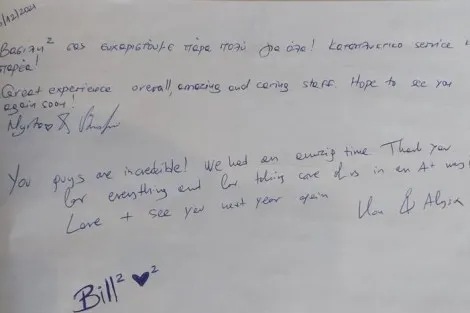 /12/2021
Βασίλη² σας ευχαριστούμε πάρα πολύ για όλα! Καταπληκτικό service κ
παρέα!
Great experience overall, amazing and caring staff. Hope to see you
again soon!
Myrto &
You guys are incredible! We had an amazing time. Thank you
for everything and for taking care of us in an A+ way!
Love + see you next year again & Alexia
Bill² ♥²